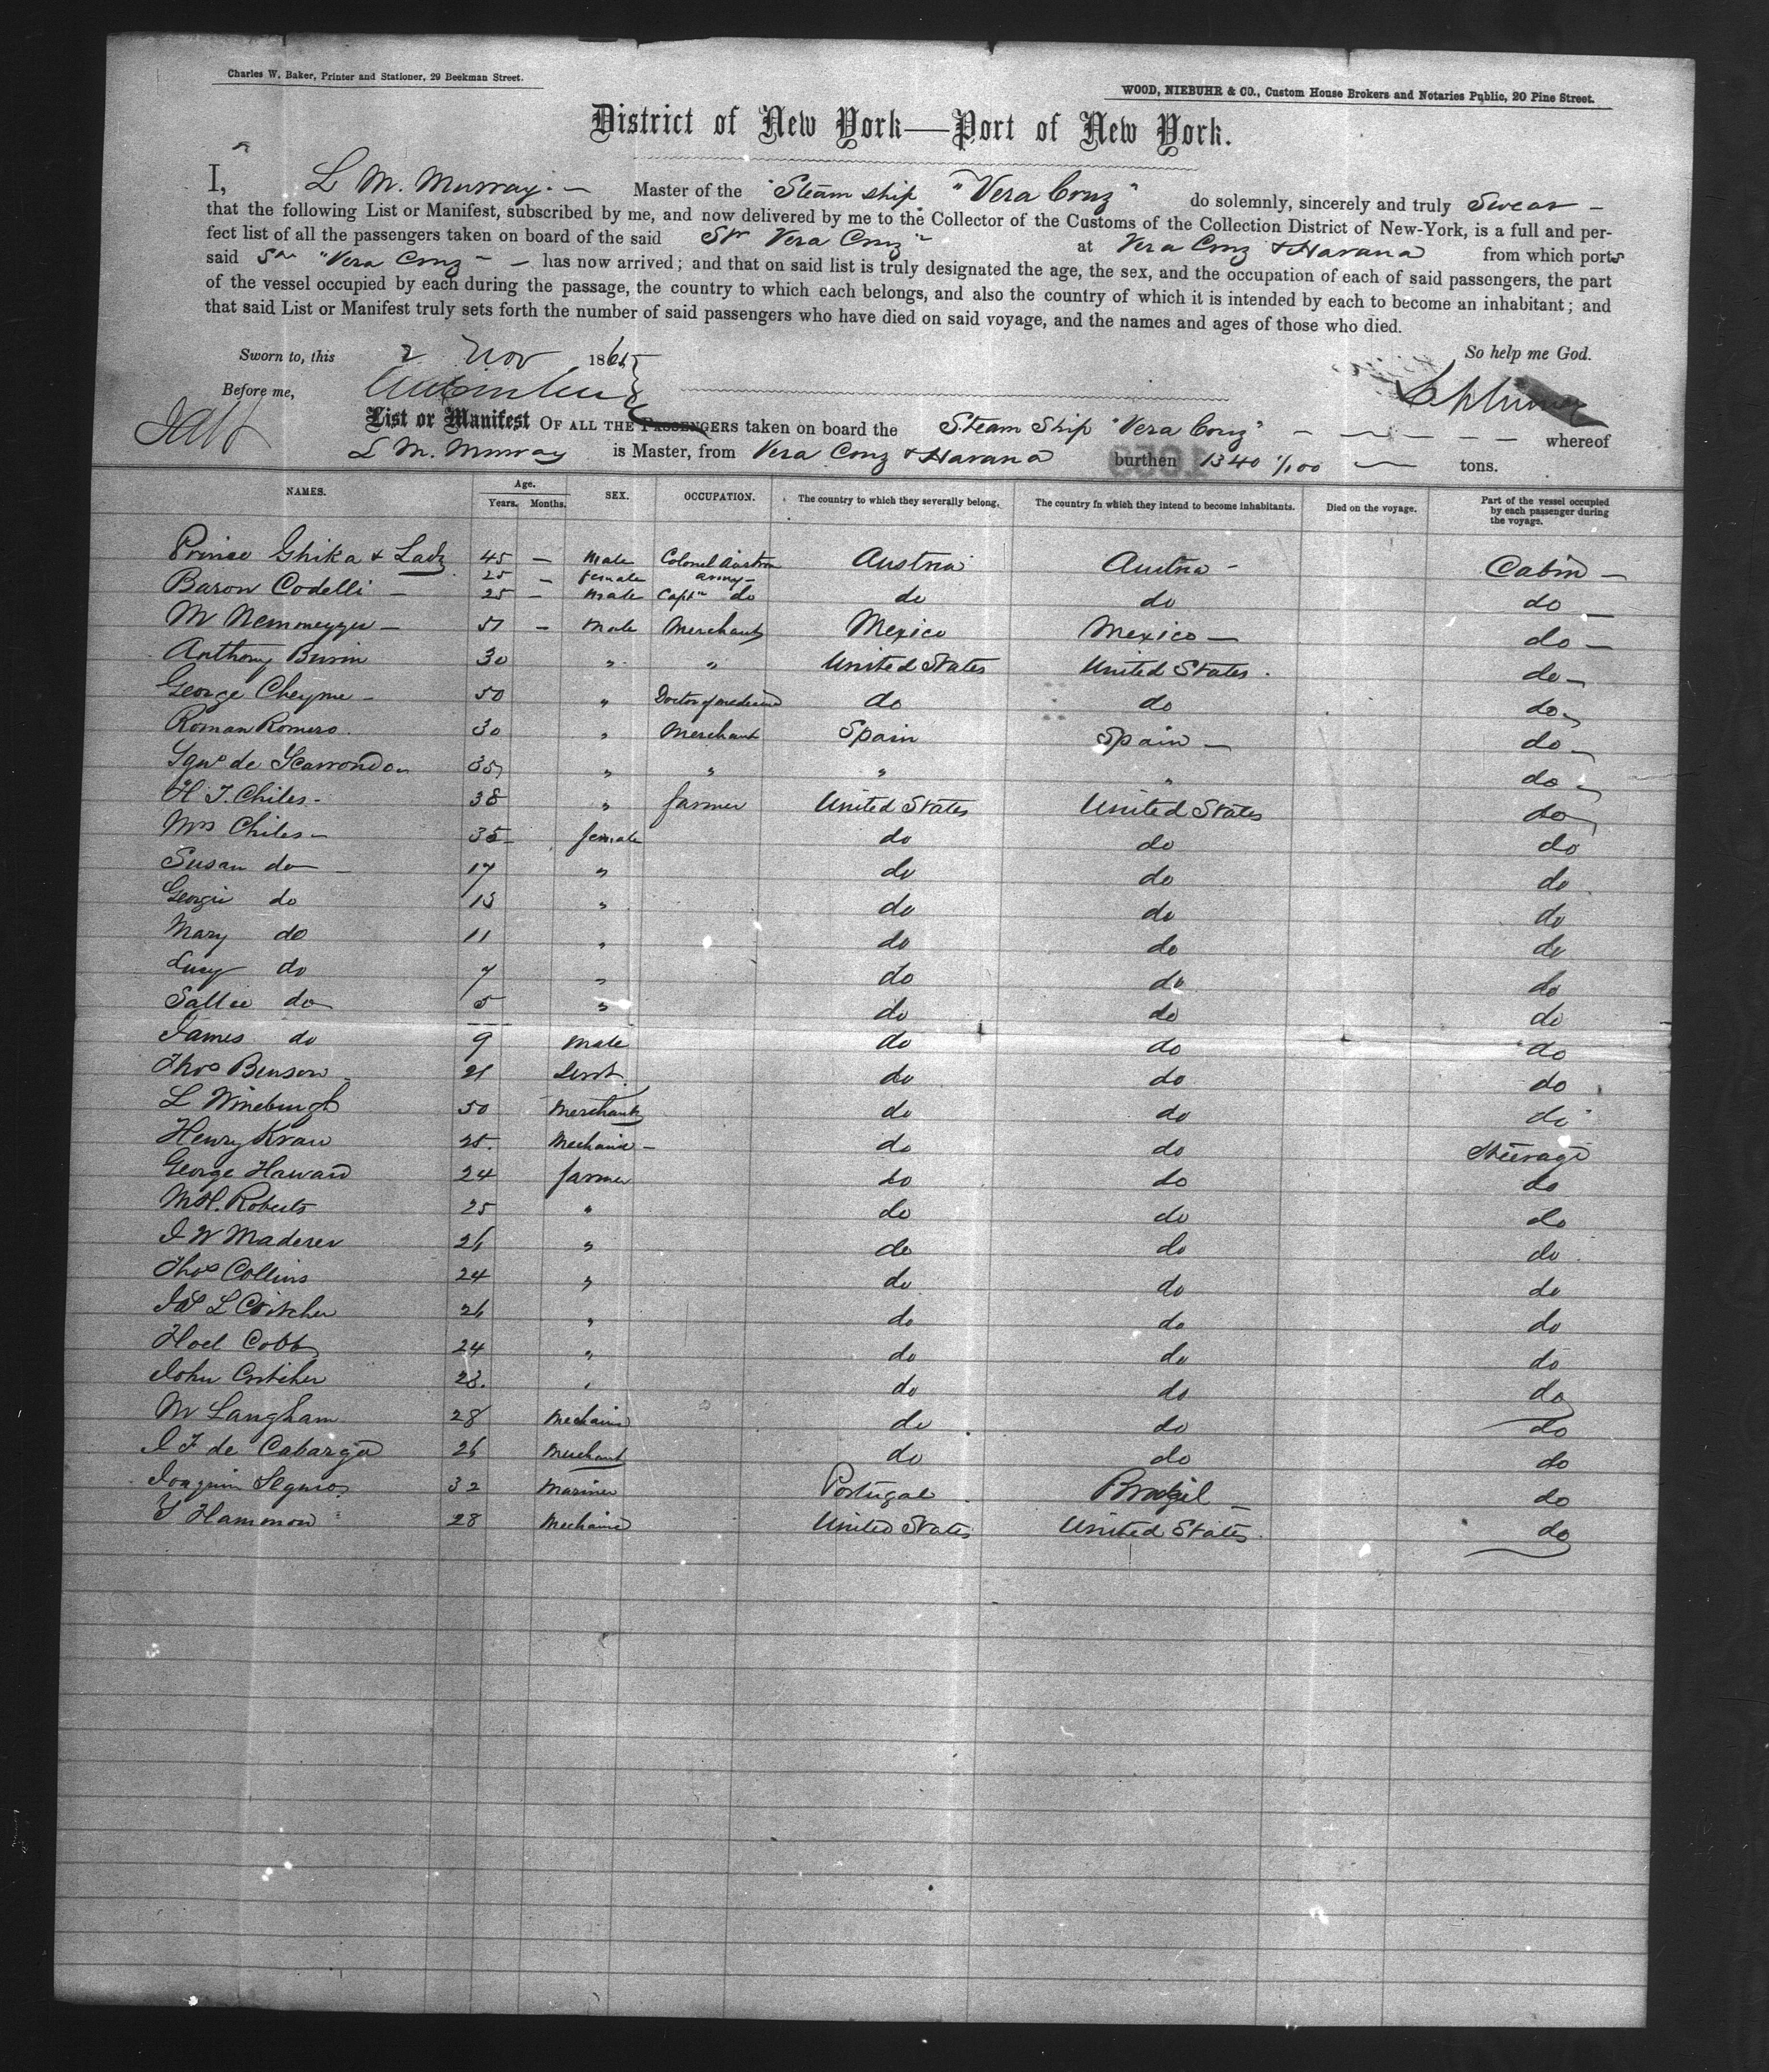 Charles W. Baker, Printer and Stationer, 29 Beekman Street.
WOOD, NIEBUHR & CO., Custom House Brokers and Notaries Public, 20 Pine Street.
District of New York—Port of New York.
I, L M. Murray. — Master of the Steam ship "Vera Cruz" do solemnly, sincerely and truly Swear —
that the following List or Manifest, subscribed by me, and now delivered by me to the Collector of the Customs of the Collection District of New-York, is a full and per-
fect list of all the passengers taken on board of the said Str Vera Cruz" at Vera Cruz & Havana from which ports
said Str "Vera Cruz — — has now arrived; and that on said list is truly designated the age, the sex, and the occupation of each of said passengers, the part
of the vessel occupied by each during the passage, the country to which each belongs, and also the country of which it is intended by each to become an inhabitant; and
that said List or Manifest truly sets forth the number of said passengers who have died on said voyage, and the names and ages of those who died.
Sworn to, this 2 Nov 1865 So help me God.
Before me,
List or Manifest OF ALL THE PASSENGERS taken on board the Steam Ship "Vera Cruz" — — — — — whereof
L M. Murray is Master, from Vera Cruz & Havana burthen 1340 1/100 — tons.
NAMES. Age. Years. Months. SEX. OCCUPATION. The country to which they severally belong. The country in which they intend to become inhabitants. Died on the voyage. Part of the vessel occupied by each passenger during the voyage.
Prince Ghika & Lady 45 — Male Colonel Austrian Austria Austria — Cabin —
25 — female army —
Baron Codelli — 25 — Male Captn do do do do —
M — — Male Merchant Mexico Mexico — do —
Anthony 30 " " United States United States do —
George Cheyne — 50 " Doctor of medicine do do do
Roman Romero 30 " Merchant Spain Spain — do
de 35 " " " " do
H T. Chiles — 38 " farmer United States United States do
Mrs Chiles — 35 female do do do
Susan do — 17 " do do do
Georgie do 13 " do do do
Mary do 11 " do do do
Lucy do 7 " do do do
Sallie do 5 " do do do
James do 9 Male do do do
Thos Benson 21 Servt. do do do
L Wineburgh 50 Merchant do do do
Henry Krau 25 Mechanic — do do Steerage
George Howard 24 farmer do do do
M H. Roberts 25 " do do do
J W Maderer 26 " do do do
Thos Collins 24 " do do do
L Critcher 26 " do do do
Cobb 24 " do do do
John Critcher 23. " do do do
M Langham 28 Mechanic do do do
J F de Cabarga 26 Merchant do do do
Joaquim 32 Mariner Portugal Brazil — do
Hammon 28 Mechanic United States United States do